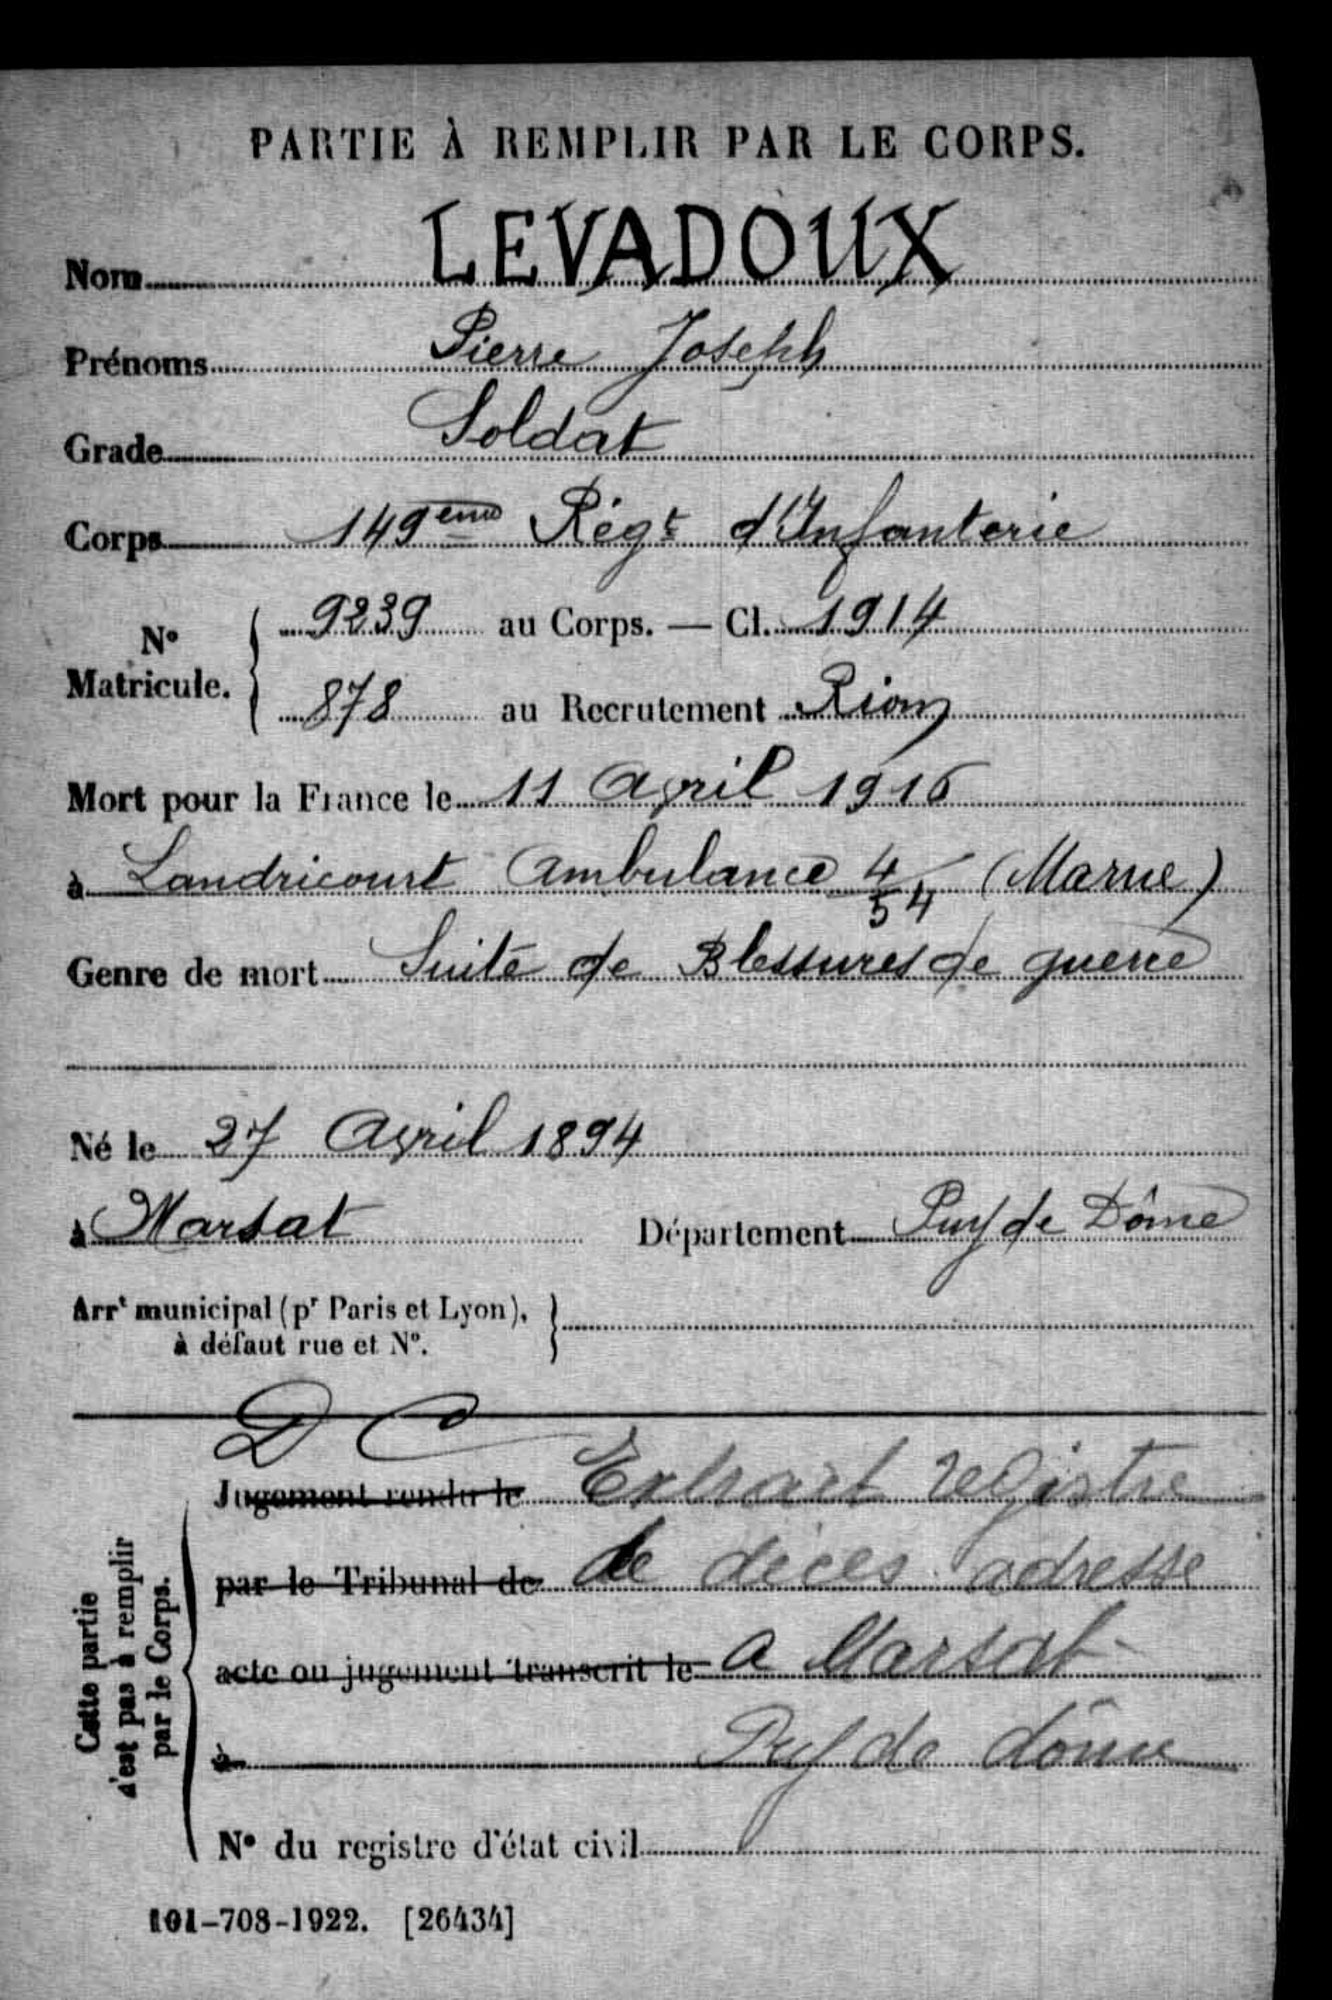 PARTIE À REMPLIR PAR LE CORPS.
Nom LEVADOUX
Prénoms Pierre Joseph
Grade Soldat
Corps 149ème Régt d'Infanterie
N° Matricule. 9239 au Corps. — Cl. 1914
878 au Recrutement Riom
Mort pour la France le 11 Avril 1916
à Landricourt Ambulance 4/54 (Marne)
Genre de mort Suite de Blessures de guerre
Né le 27 Avril 1894
à Marsat Département Puy de Dôme
Arrt municipal (pr Paris et Lyon),
à défaut rue et N°.
D C
Jugement rendu le Extrait registre
par le Tribunal de de décès adresse
acte ou jugement transcrit le a Marsat
à Puy de dôme
N° du registre d'état civil
Cette partie
n'est pas à remplir
par le Corps.
101-708-1922. [26434]